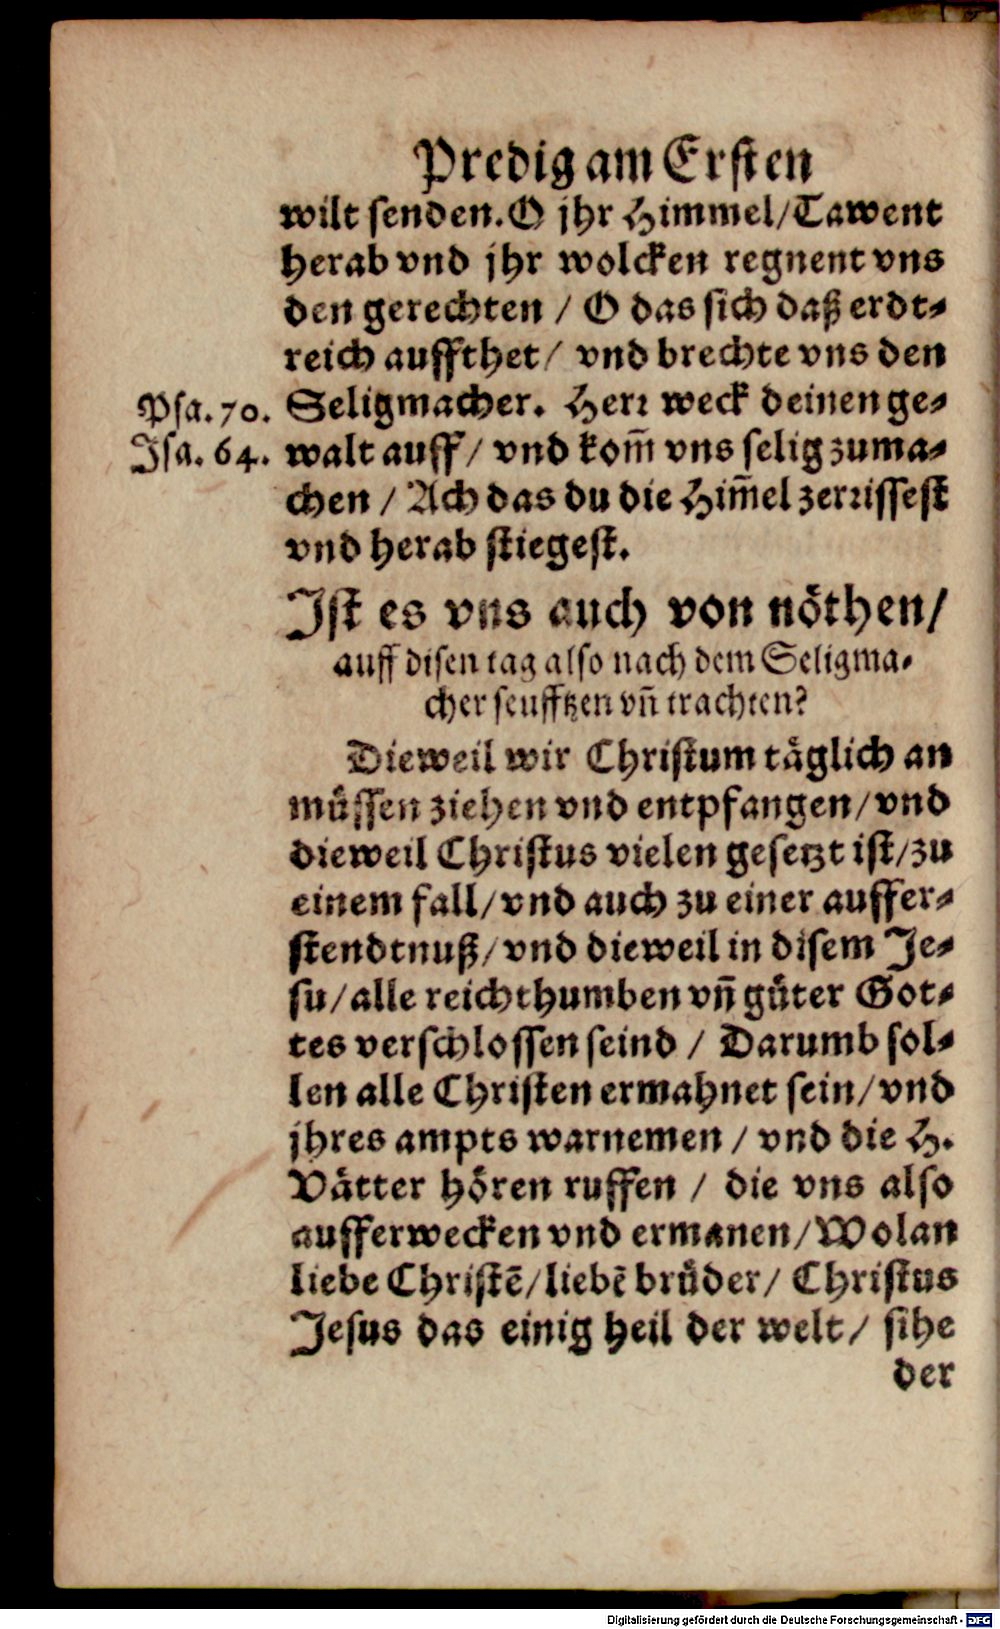 Predig am Ersten
wilt senden. O jhr Himmel/Tawent
herab vnd jhr wolcken regnent vns
den gerechten / O das sich daß erdt-
reich auffthet/ vnd brechte vns den
Psa. 70. Seligmacher. Herr weck deinen ge-
Isa. 64. walt auff/ vnd kom̄ vns selig zuma-
chen / Ach das du die Him̄el zerrissest
vnd herab stiegest.
Ist es vns auch von nöthen/
auff disen tag also nach dem Seligma-
cher seufftzen vn̄ trachten?
Dieweil wir Christum täglich an
müssen ziehen vnd entpfangen/vnd
dieweil Christus vielen gesetzt ist/zu
einem fall/vnd auch zu einer auffer-
stendtnuß/vnd dieweil in disem Je-
su/alle reichthumben vn̄ güter Got-
tes verschlossen seind / Darumb sol-
len alle Christen ermahnet sein/vnd
jhres ampts warnemen / vnd die H.
Vätter hören ruffen / die vns also
aufferwecken vnd ermanen/Wolan
liebe Christē/liebē brüder/ Christus
Jesus das einig heil der welt/ sihe
der
Digitalisierung gefördert durch die Deutsche Forschungsgemeinschaft - DFG